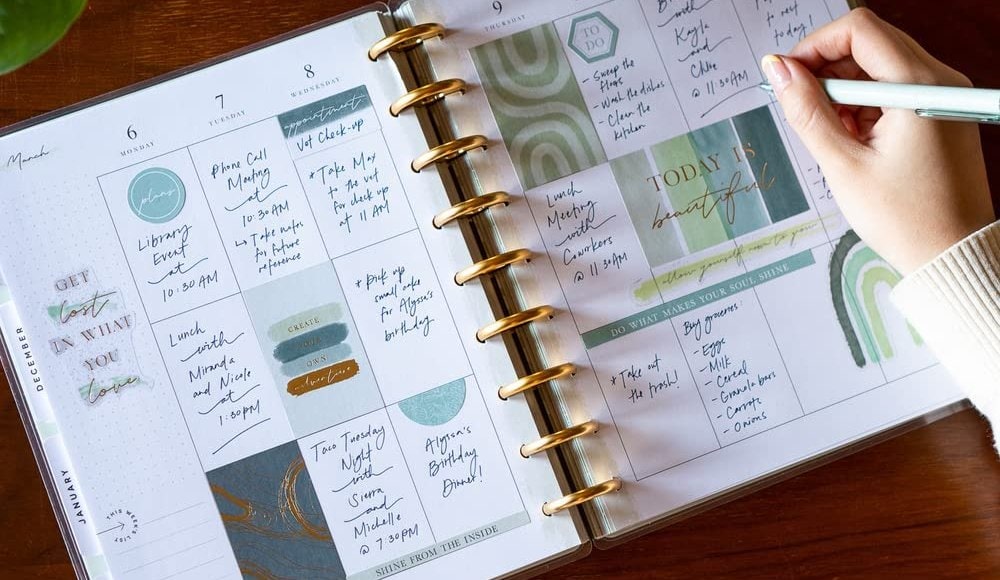 March
6
MONDAY
plans
Library
Event
at
10:30AM
Lunch
with
Miranda
and Nicole
at
1:30PM
7
TUESDAY
Phone Call
Meeting
at
10:30AM
↳ Take notes
for future
reference
CREATE
YOUR
OWN
adventure
Taco Tuesday
Night
with
Sierra
and
Michelle
@ 7:30PM
8
WEDNESDAY
appointment
Vet Check-up
* Take Max
to the vet
for check up
at 11 AM
* Pick up
small cake
for Alyssa's
birthday
Alyssa's
Birthday
Dinner!
SHINE FROM THE INSIDE
GET
lost
IN WHAT
YOU
love
DECEMBER
JANUARY
THIS WEEK'S LIST
9
THURSDAY
Lunch
Meeting
with
Coworkers
@ 11:30AM
* Take out
the trash!
TO
DO
- Sweep the
floors
- Wash the dishes
- Clean the
kitchen
TODAY IS
beautiful
allow yourself room to
DO WHAT MAKES YOUR SOUL SHINE
Buy groceries:
- Eggs
- Milk
- Cereal
- Granola bars
- Carrots
- Onions
with
Kayla
and
Chloe
@ 11:30AM
to rest
today!